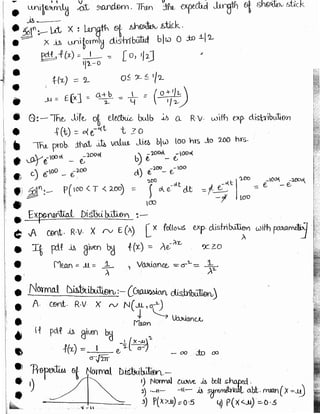 uniformly at random. Then the expected length of shorter stick
is
Soln:- Let X : Length of shorter stick.
X is uniformly distributed b/w 0 to 1/2
pdf, f(x) = 1/(1/2-0) = [0, 1/2]
f(x) = 2 0 ≤ x ≤ 1/2
μ = E[X] = (a+b)/2 = 1/4 = (0+1/2 / 2)
Q:- The life of electric bulb is a R.V. with exp distribution
f(t) = αe^-αt t ≥ 0
The prob that its value lies b/w 100 hrs to 200 hrs.
a) e^-100α - e^-200α b) e^-200α - e^-100α
c) e^-100 - e^-200 d) e^-200 - e^-100
Soln:- P(100 < T < 200) = ∫ 100 200 α e^-αt dt = α e^-αt / -α | 200 100 = e^-100α - e^-200α
Exponential Distribution :-
A cont. R.V. X ~ E(λ) [X follows exp distribution with parameter λ]
If pdf is given by f(x) = λe^-λx x ≥ 0
Mean = μ = 1/λ , Variance = σ² = 1/λ²
Normal Distribution:- (Gaussian distribution)
A cont. R.V X ~ N(μ, σ²)
Mean Variance
if pdf is given by
f(x) = 1/(σ√2π) e^-1/2((x-μ)/σ)² -∞ to ∞
Properties of Normal Distribution -
1) 1) Normal curve is bell shaped.
2) -"- -"- is symmetrical abt. mean (x=μ)
3) P(X>μ) = 0.5 4) P(X<μ) = 0.5